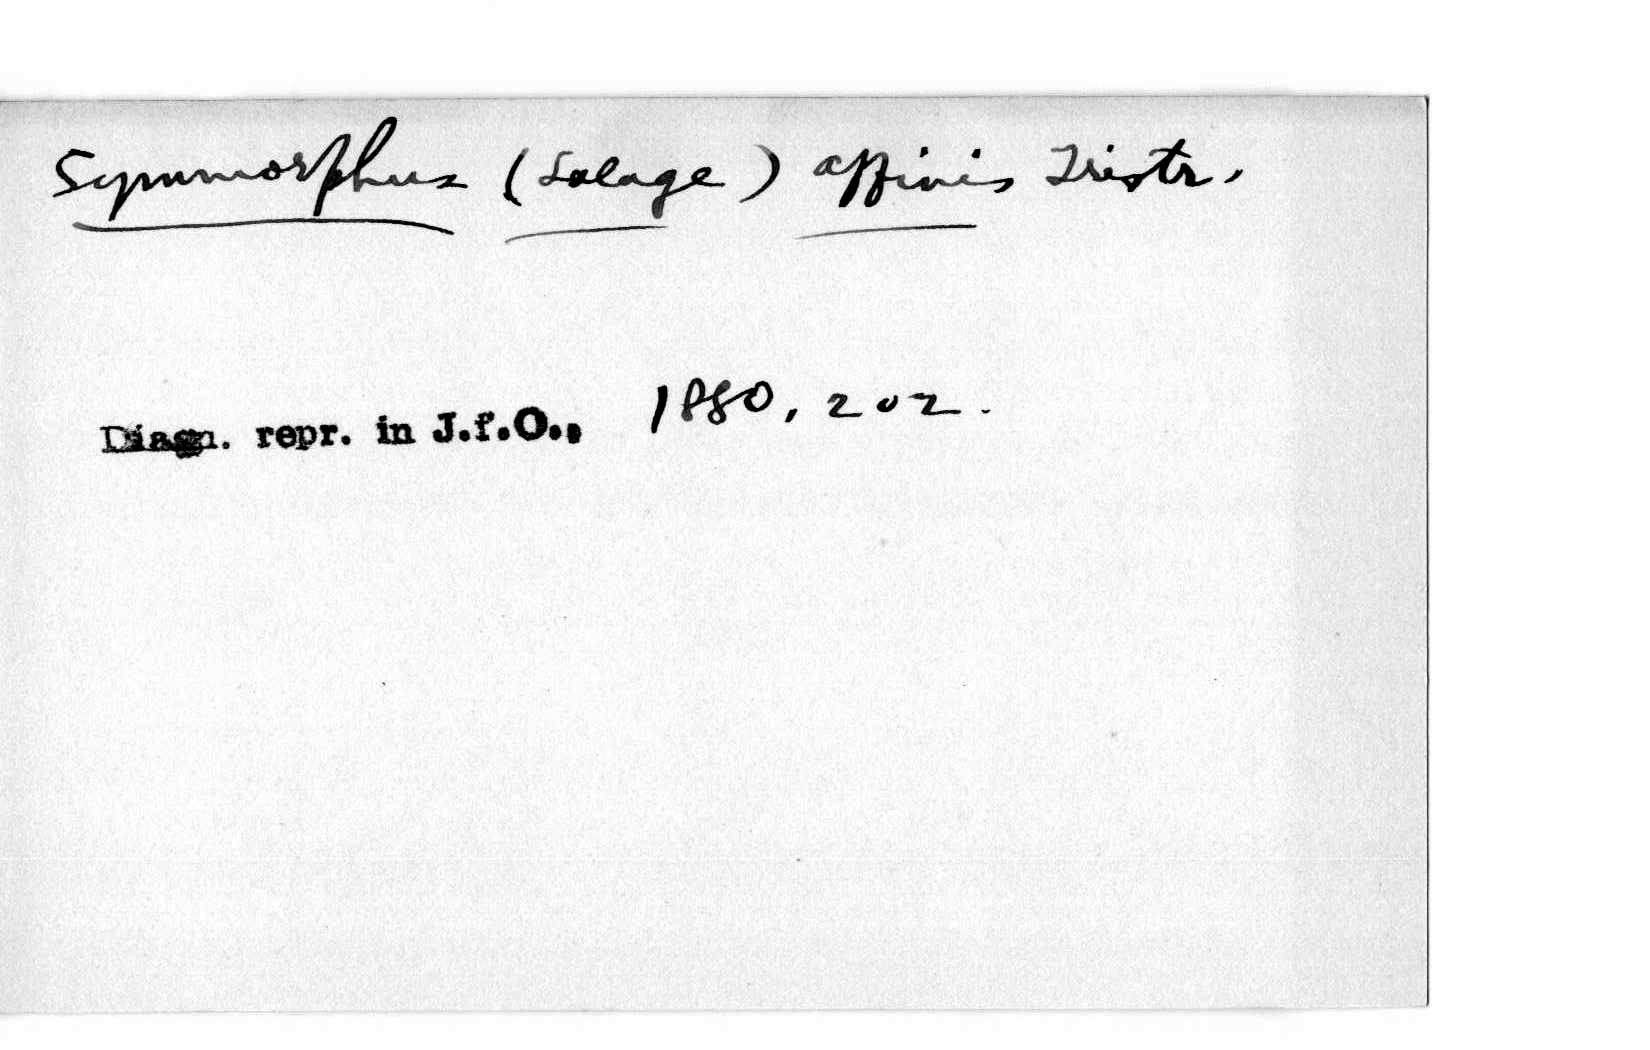 Symmorphus (Lalage) affinis Tristr.
Diagn. repr. in J.f.O., 1880, 202.